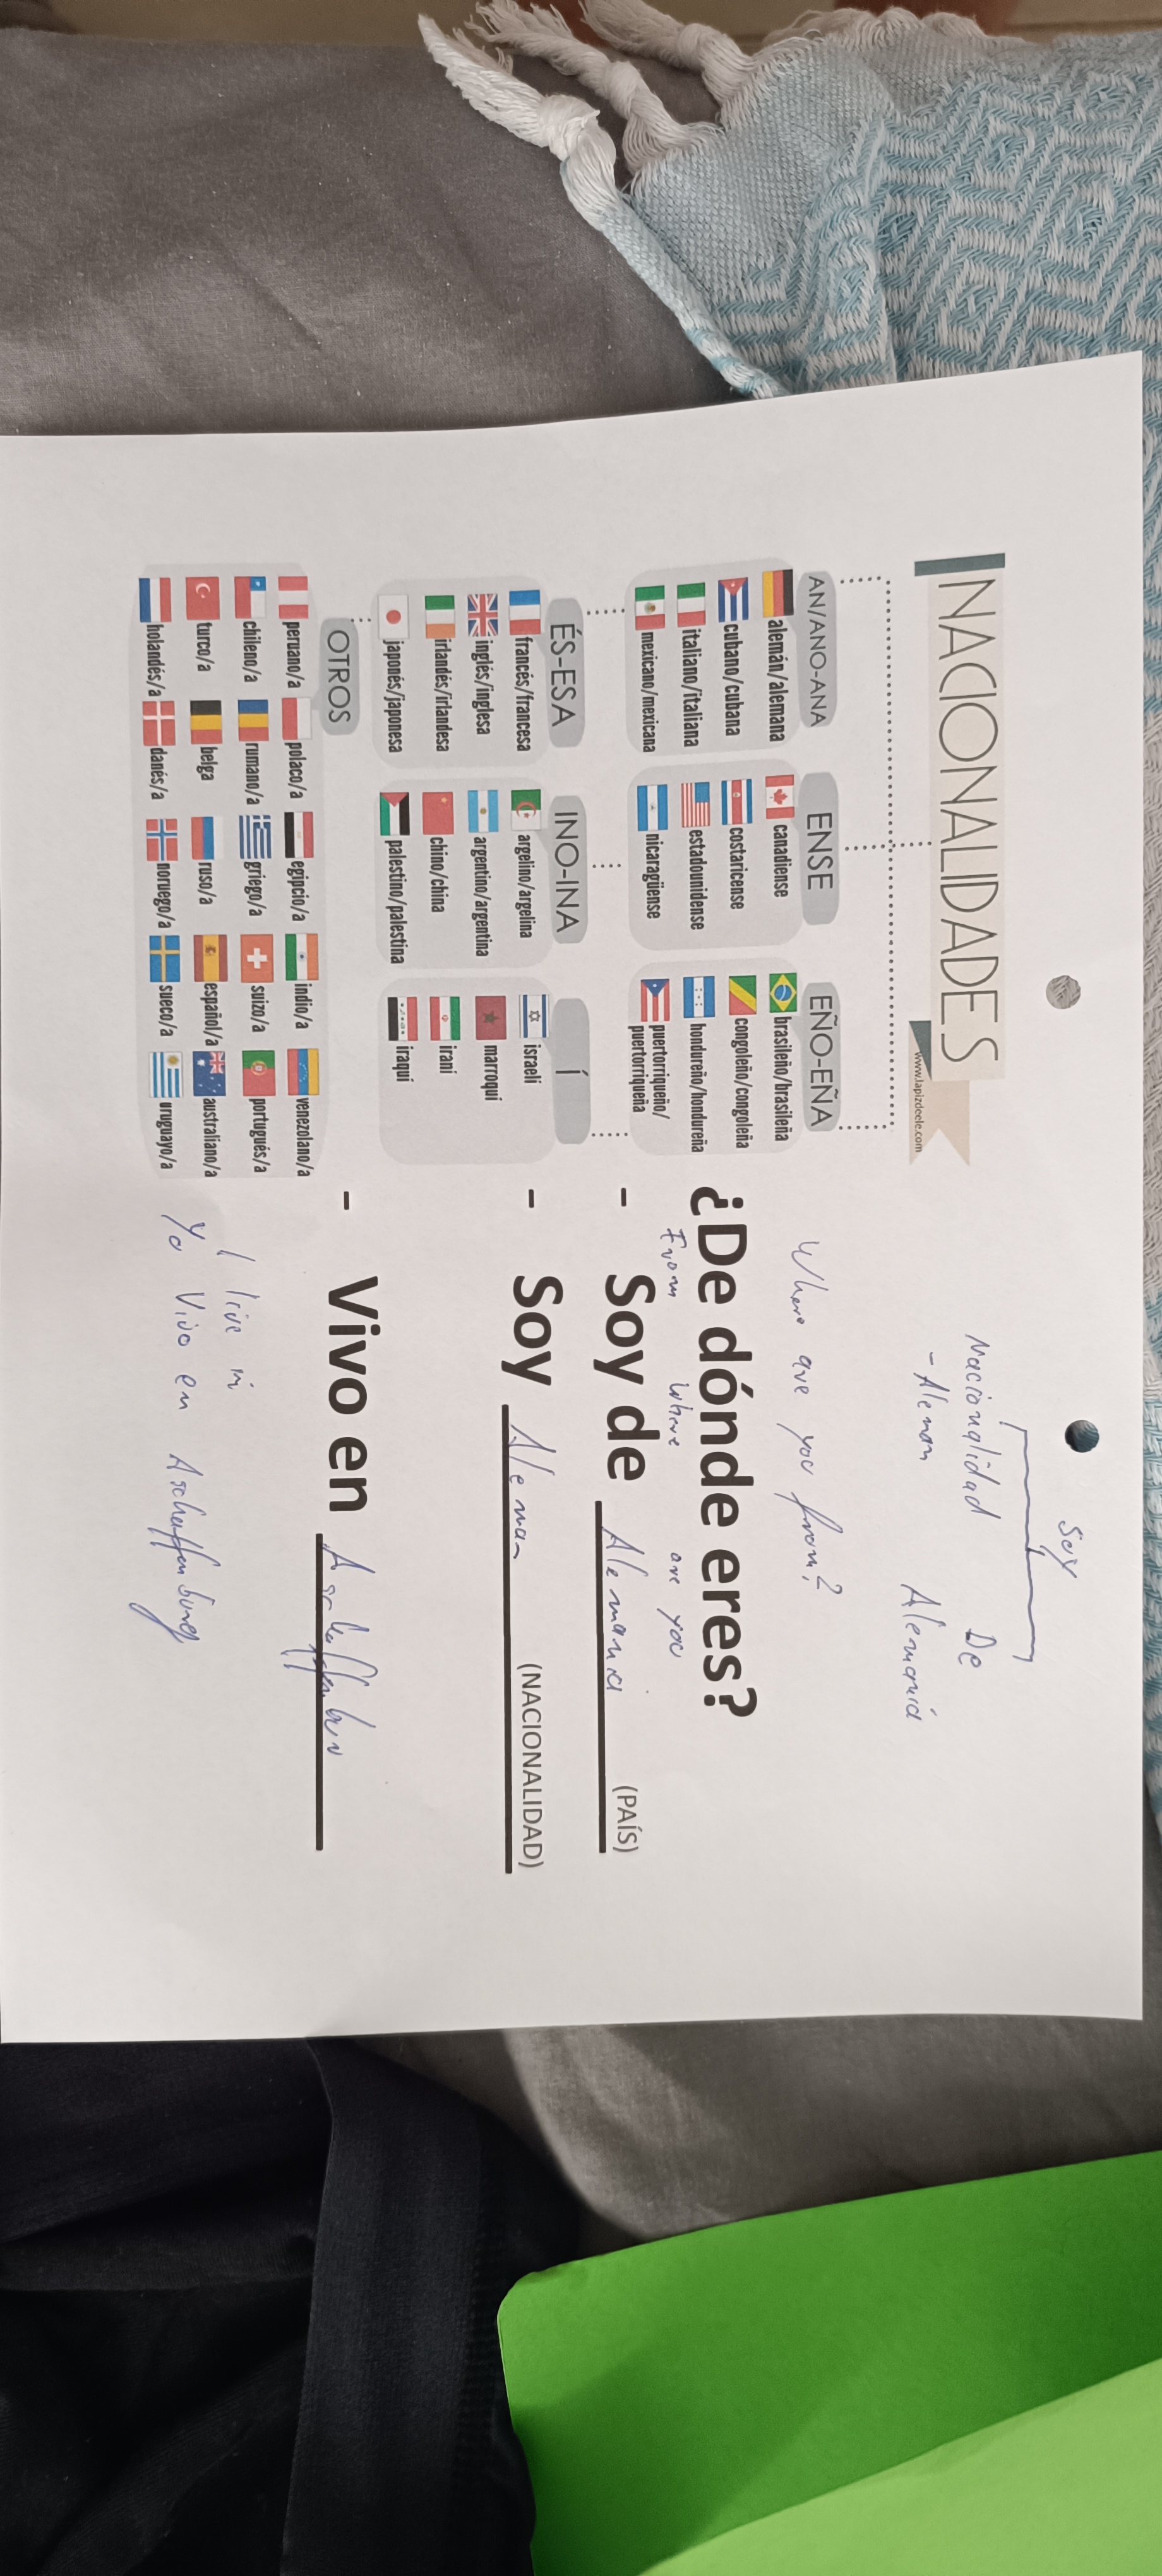 NACIONALIDADES
www.lapizdeele.com
AN/ANO-ANA
alemán/alemana
cubano/cubana
italiano/italiana
mexicano/mexicana
ENSE
canadiense
costaricense
estadounidense
nicaragüense
EÑO-EÑA
brasileño/brasileña
congoleño/congoleña
hondureño/hondureña
puertorriqueño/
puertorriqueña
ÉS-ESA
francés/francesa
inglés/inglesa
irlandés/irlandesa
japonés/japonesa
INO-INA
argelino/argelina
argentino/argentina
chino/china
palestino/palestina
Í
israelí
marroquí
iraní
iraquí
OTROS
peruano/a polaco/a egipcio/a indio/a venezolano/a
chileno/a rumano/a griego/a suizo/a portugués/a
turco/a belga ruso/a español/a australiano/a
holandés/a danés/a noruego/a sueco/a uruguayo/a
Soy
Nacionalidad De
- Aleman Alemania
Where are you from?
¿De dónde eres?
From where are you
- Soy de Alemania (PAÍS)
- Soy Aleman (NACIONALIDAD)
- Vivo en
I live in
Yo Vivo en Aschaffenburg